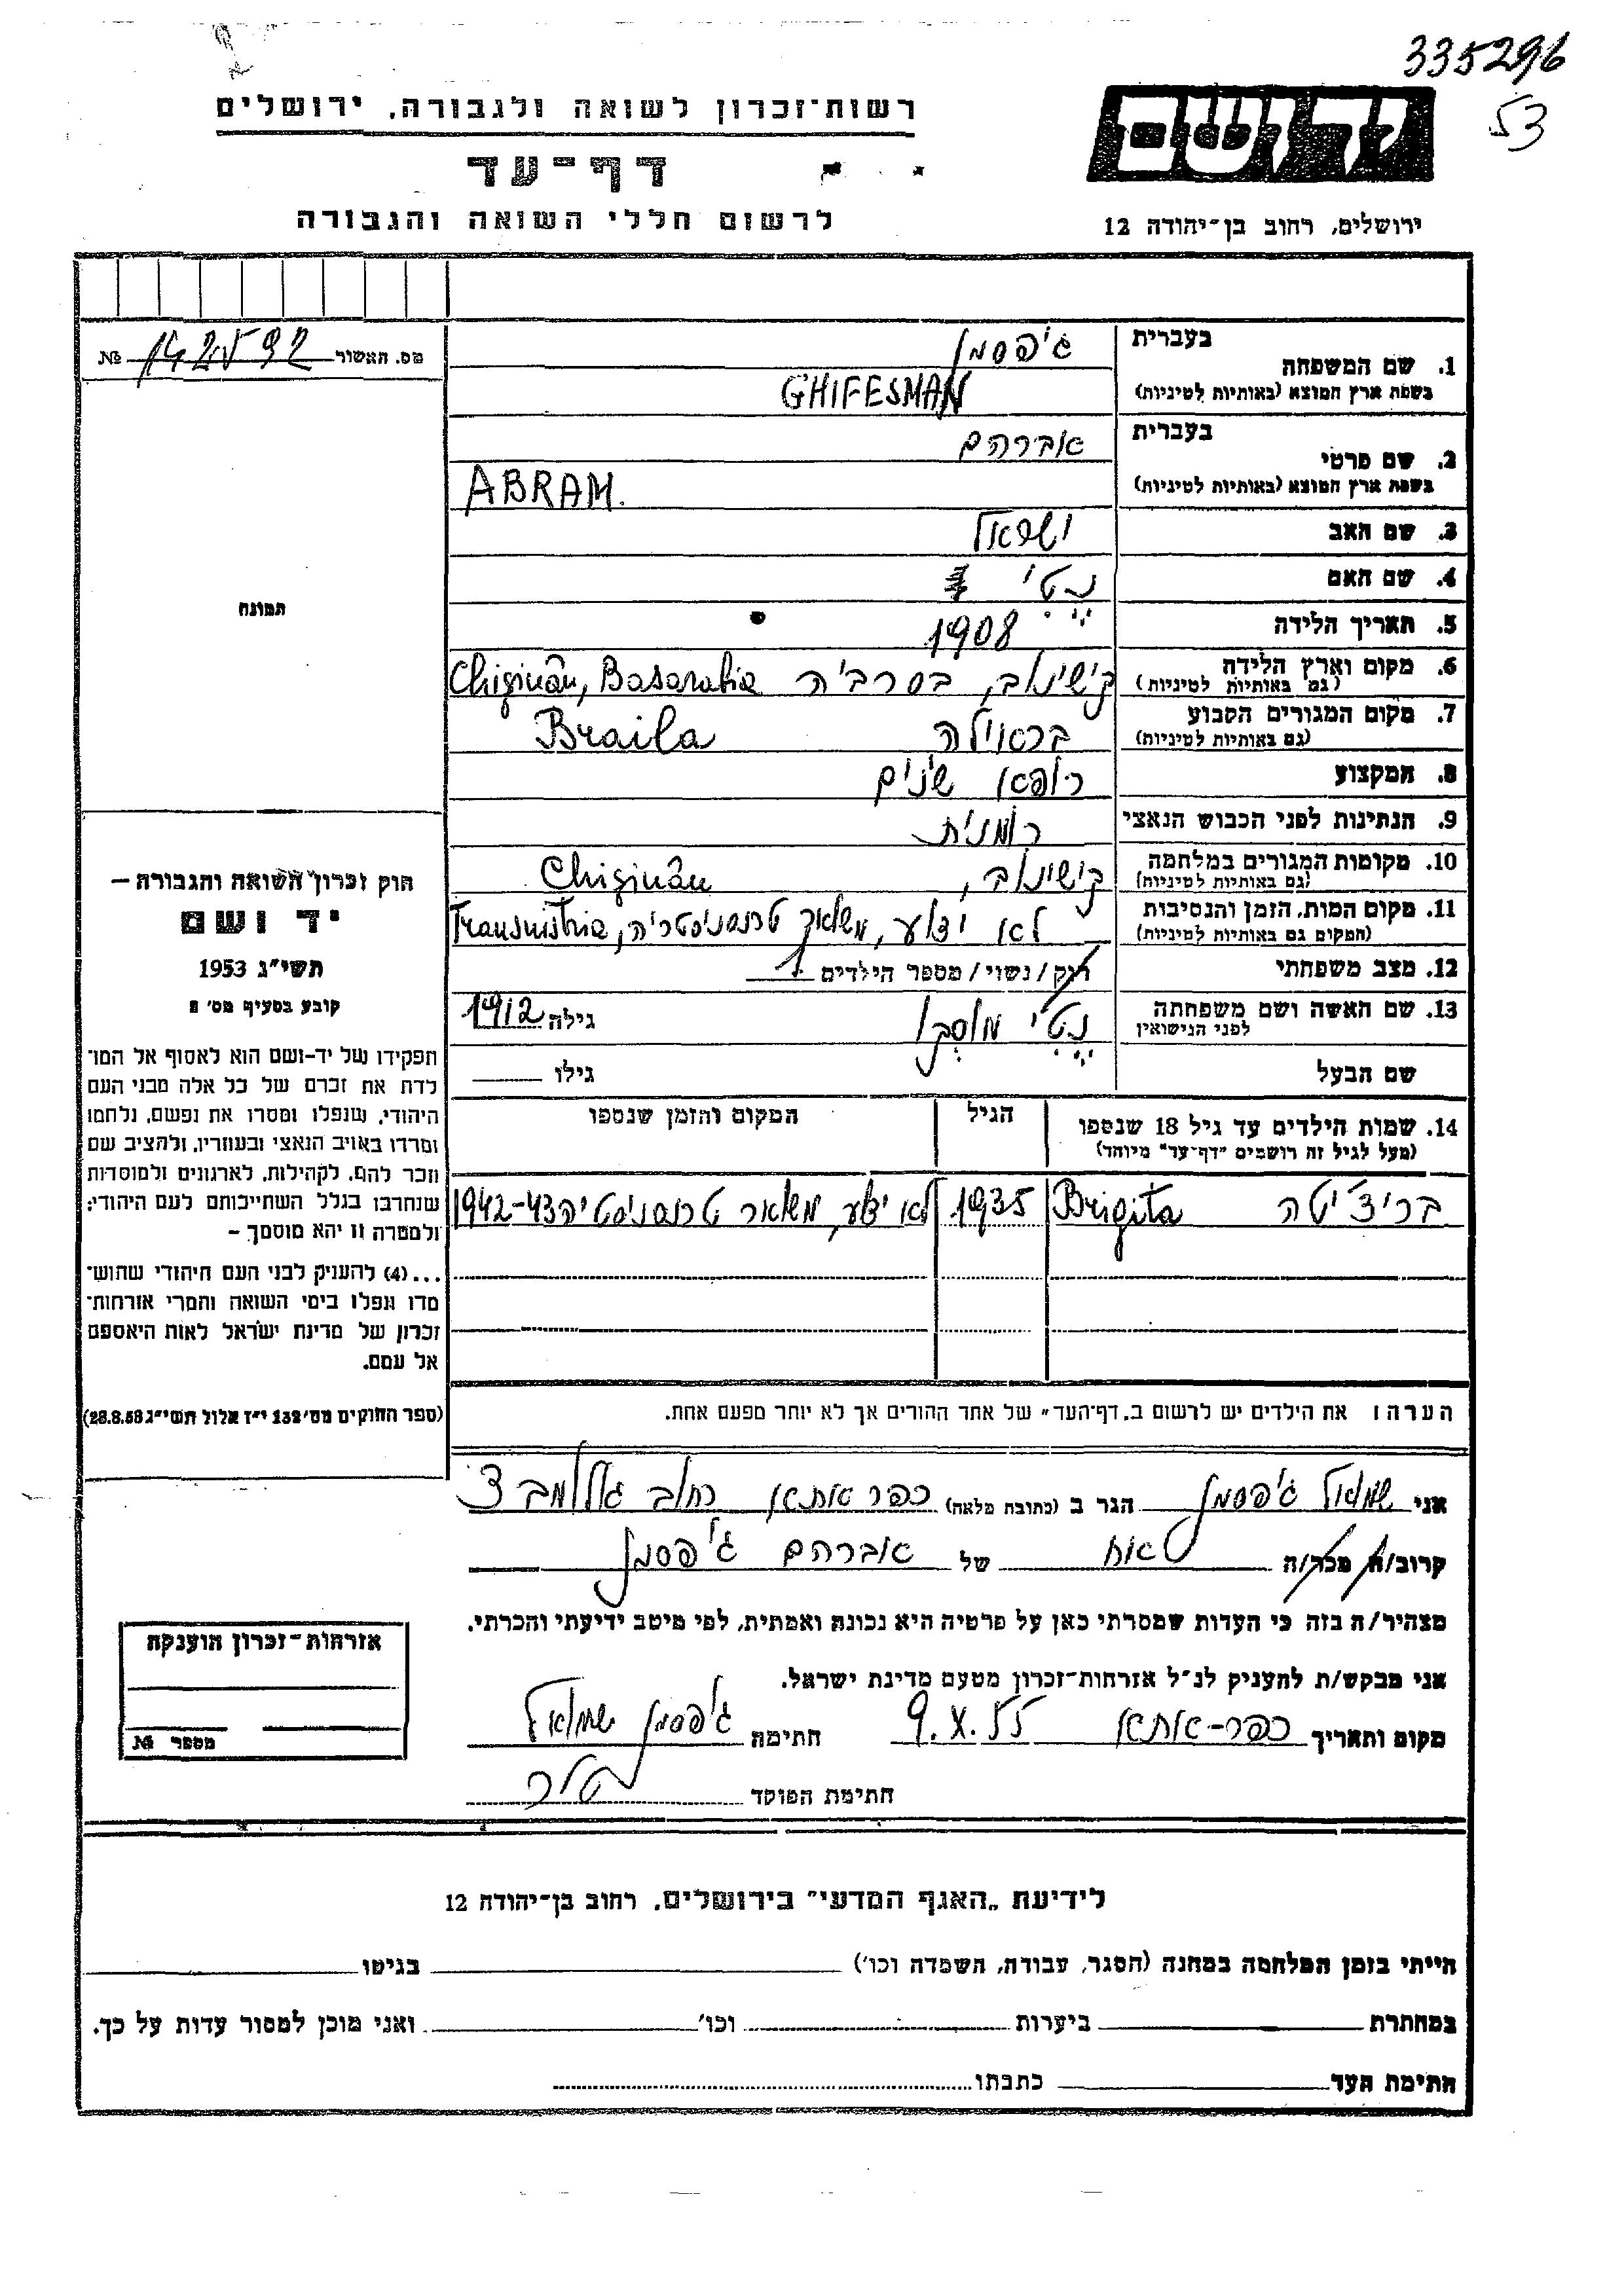 335296
53
רשות־זכרון לשואה ולגבורה, ירושלים
דף־עד
לרשום חללי השואה והגבורה
ידושם
ירושלים, רחוב בן־יהודה 12
מס. האשור № 142592
תמונה
1. שם המשפחה בעברית ג'פסמן
בשפת ארץ המוצא (באותיות לטיניות) GHIFESMAN
2. שם פרטי בעברית אברהם
בשפת ארץ המוצא (באותיות לטיניות) ABRAM.
3. שם האב ישראל
4. שם האם נטי
5. תאריך הלידה 1908
6. מקום וארץ הלידה (גם באותיות לטיניות) קישינוב, בסרביה Chişinău, Basarabia
7. מקום המגורים הקבוע (גם באותיות לטיניות) בראילה Braila
8. המקצוע רופא שנים
9. הנתינות לפני הכבוש הנאצי רומנית
10. מקומות המגורים במלחמה (גם באותיות לטיניות) קישינוב, Chişinău
11. מקום המות, הזמן והנסיבות (המקום גם באותיות לטיניות) לא ידוע, משוער טרנסניסטריה, Transnistria
12. מצב משפחתי רוק/נשוי/מספר הילדים 1
13. שם האשה ושם משפחתה לפני הנישואין נטי גילה 1912
שם הבעל גילו
14. שמות הילדים עד גיל 18 שנספו הגיל המקום והזמן שנספו
(מעל לגיל זה רושמים "דף־עד" מיוחד)
בריצ'יטה Brigita 1935 לא ידוע, משוער טרנסניסטיה 1942-43
הערה: את הילדים יש לרשום ב„דף־העד" של אחד ההורים אך לא יותר מפעם אחת.
חוק זכרון השואה והגבורה —
יד ושם
תשי"ג 1953
קובע בסעיף מס' 2
תפקידו של יד־ושם הוא לאסוף אל המו־
לדת את זכרם של כל אלה מבני העם
היהודי, שנפלו ומסרו את נפשם, נלחמו
ומרדו באויב הנאצי ובעוזריו, ולהציב שם
וזכר להם, לקהילות, לארגונים ולמוסדות
שנחרבו בגלל השתייכותם לעם היהודי;
ולמטרה זו יהא מוסמך —
...(4) להעניק לבני העם היהודי שהוש־
מדו ונפלו בימי השואה והמרי אזרחות־
זכרון של מדינת ישראל לאות היאספם
אל עמם.
(ספר החוקים מס' 132 י"ז אלול תשי"ג 28.8.53)
אני שמואל ג'פסמן הגר ב (כתובת מלאה) כפר אתא רחוב
קרוב/ה מכר/ה אח של אברהם ג'פסמן
מצהיר/ה בזה כי העדות שמסרתי כאן על פרטיה היא נכונה ואמתית, לפי מיטב ידיעתי והכרתי.
אני מבקש/ת להעניק לנ"ל אזרחות־זכרון מטעם מדינת ישראל.
מקום ותאריך כפר־אתא 9.X.55 חתימה ג'פסמן שמואל
חתימת הפוקד
אזרחות־זכרון הוענקה
מספר №
לידיעת „האגף המדעי" בירושלים, רחוב בן־יהודה 12
הייתי בזמן המלחמה במחנה (הסגר, עבודה, השמדה וכו') בגיטו
במחתרת ביערות וכו' ואני מוכן למסור עדות על כך.
חתימת העד כתבתו